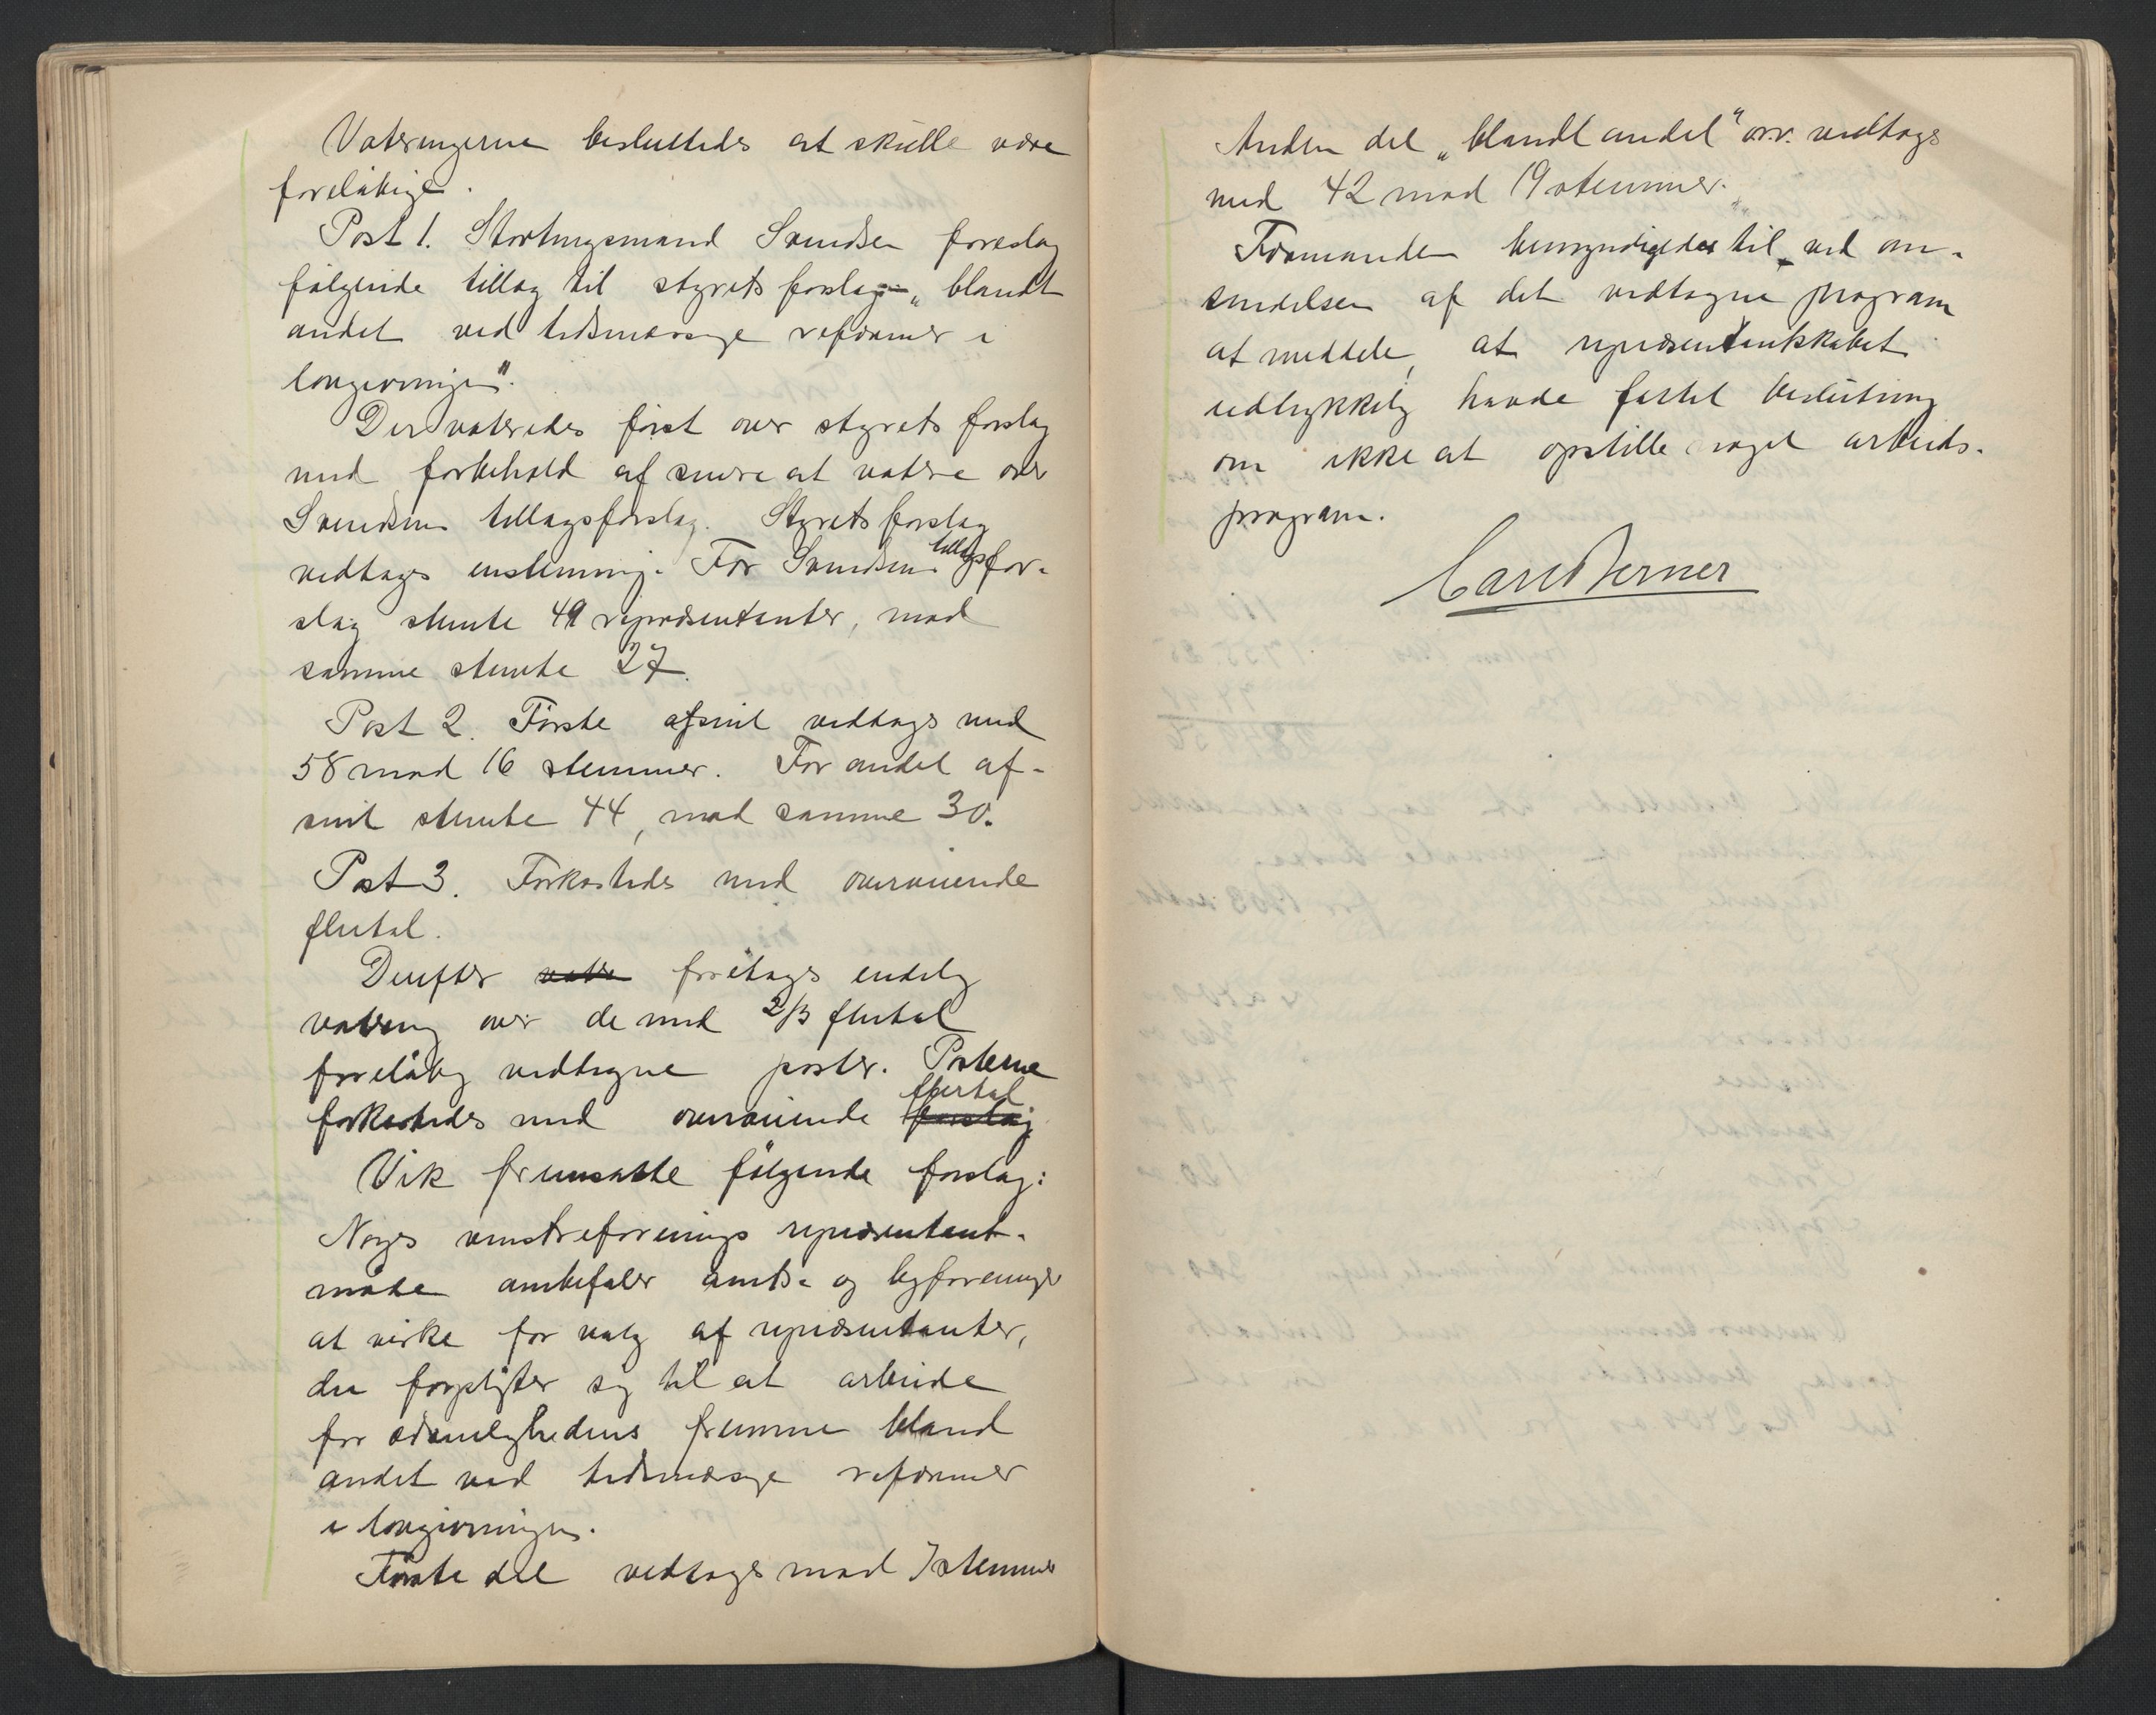 Voteringerne besluttedes at skulle være
foreløbige.
Post 1. Stortingsmand Svendsen foreslog
følgende tillæg til styrets forslag „blandt
andet ved tidsmæssige reformer i
lovgivningen".
Der voteredes først over styrets forslag
med forbehold af senere at votere over
Svendsens tillægsforslag. Styrets forslag
vedtages enstemmig. For Svendsens tillægsfor-
slag stemte 49 repræsentanter, mod
samme stemte 27.
Post 2. Første afsnit vedtages med
58 mod 16 stemmer. For andet af-
snit stemte 44, mod samme 30.
Post 3. Forkastedes med overveiende
flertal.
Derefter votere foretages endelig
votering over de med 2/3 flertal
foreløbig vedtagne poster. Posterne
forkastedes med overveiende forslag flertal
Vik fremsatte følgende forslag:
Norges venstreforenings repræsentant-
møte anbefaler amts- og byforeninger
at virke for valg af repræsentanter,
der forpligter sig til at arbeide
for ædruelighedens fremme bland
andet ved tidsmæssige reformer
i lovgivningen.
Første del vedtages mod 7 stemmer
Anden del „blandt andet" o.s.v. vedtages
med 42 mod 19 stemmer.
Formanden bemyndigedes til ved om-
sendelsen af det vedtagne program
at meddele, at repræsentantskabet
udtrykkelig havde fattet beslutning
om ikke at opstille noget arbeids-
program.
Carl Berner